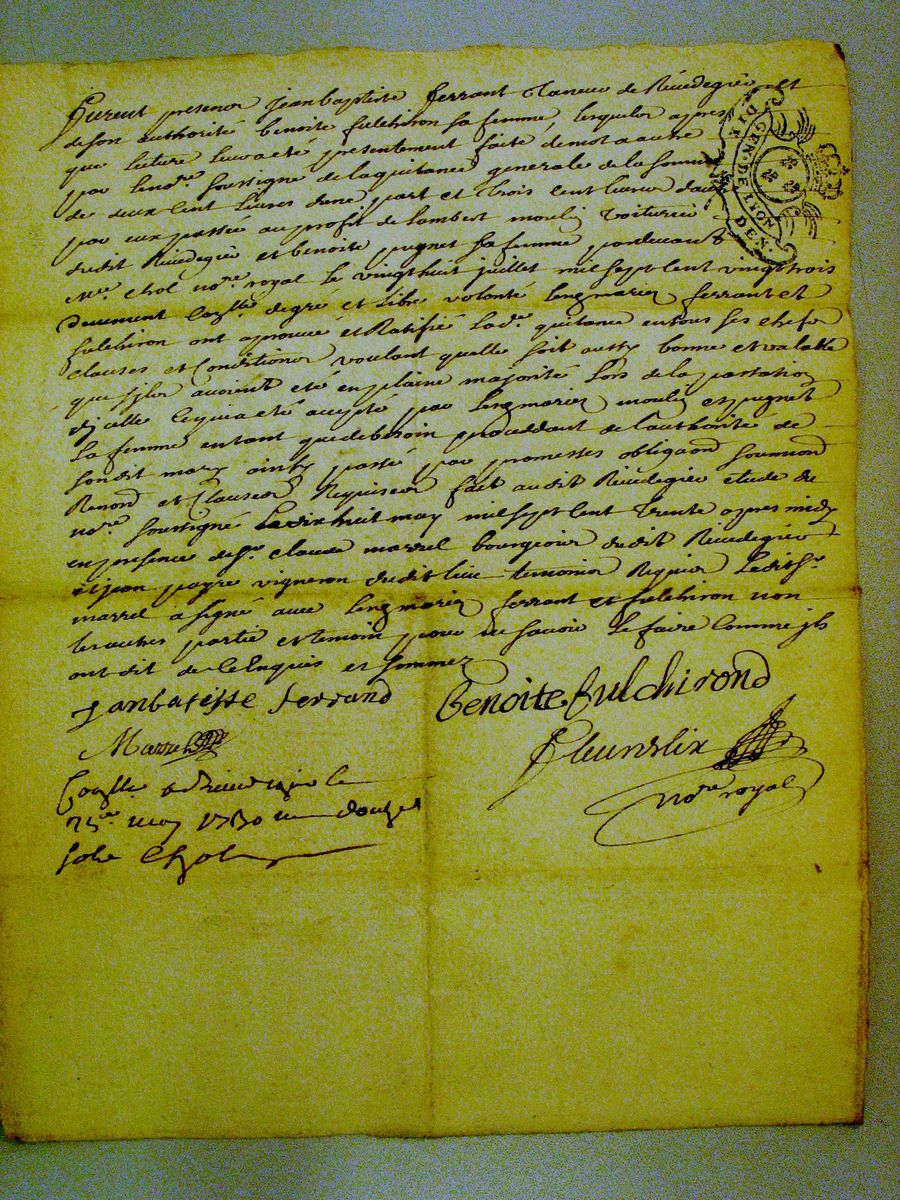 furent presens jean baptiste ferrant Taneur de Rivedegier et
de son authorité benoite fulchiron sa femme, lesquels apres
que lecture leur a eté presentement faite de mot a autre
par le no.re soussigné de la quitance generale de la somme
de deux cent livres dune part et trois cent livres dautre
par eux passée au profit de lambert moulin voiturier
dudit Rivedegier et benoite pugnet sa femme pardevant
M.re Chol no.re royal le vingthuit juillet mil sept cent vingt trois
Deuement de gré et libre volonté les maries ferrant et
fulchiron ont aprouvé et Ratifié la d. quitance en tous ses chefs
clauses et Conditions voulant quelle soit aussy bonne et valable
que sils avoient eté en plaine majorité lors de la
dicelle ce qui a eté accepté par les maries moulin et pugnet
sa femme en tant que de besoin procedant de l'authorité de
sondit mary ainsy passé par promesses obligaons soumons
Renons et Clauses Requises fait audit Rivedegier etude du
no.re soussigné Le dix huit may mil sept cent trente apres midy
en presence de s.r claude marrel bourgeois dudit Rivedegier
et jean payre vigneron dudit lieu temoins Requis Ledit s.r
marrel a signé avec les maries ferrant et fulchiron non
les autres partie et temoin pour ne savoir le faire comme ils
ont dit de ce Enquis et sommez
Janbatisse ferrand Benoite fulchirond
Marrel
no.re royal
Con.lle a Rivedegier le
25.me may 1730 douze
sols Chol
GEN. DE LYON
DEN.